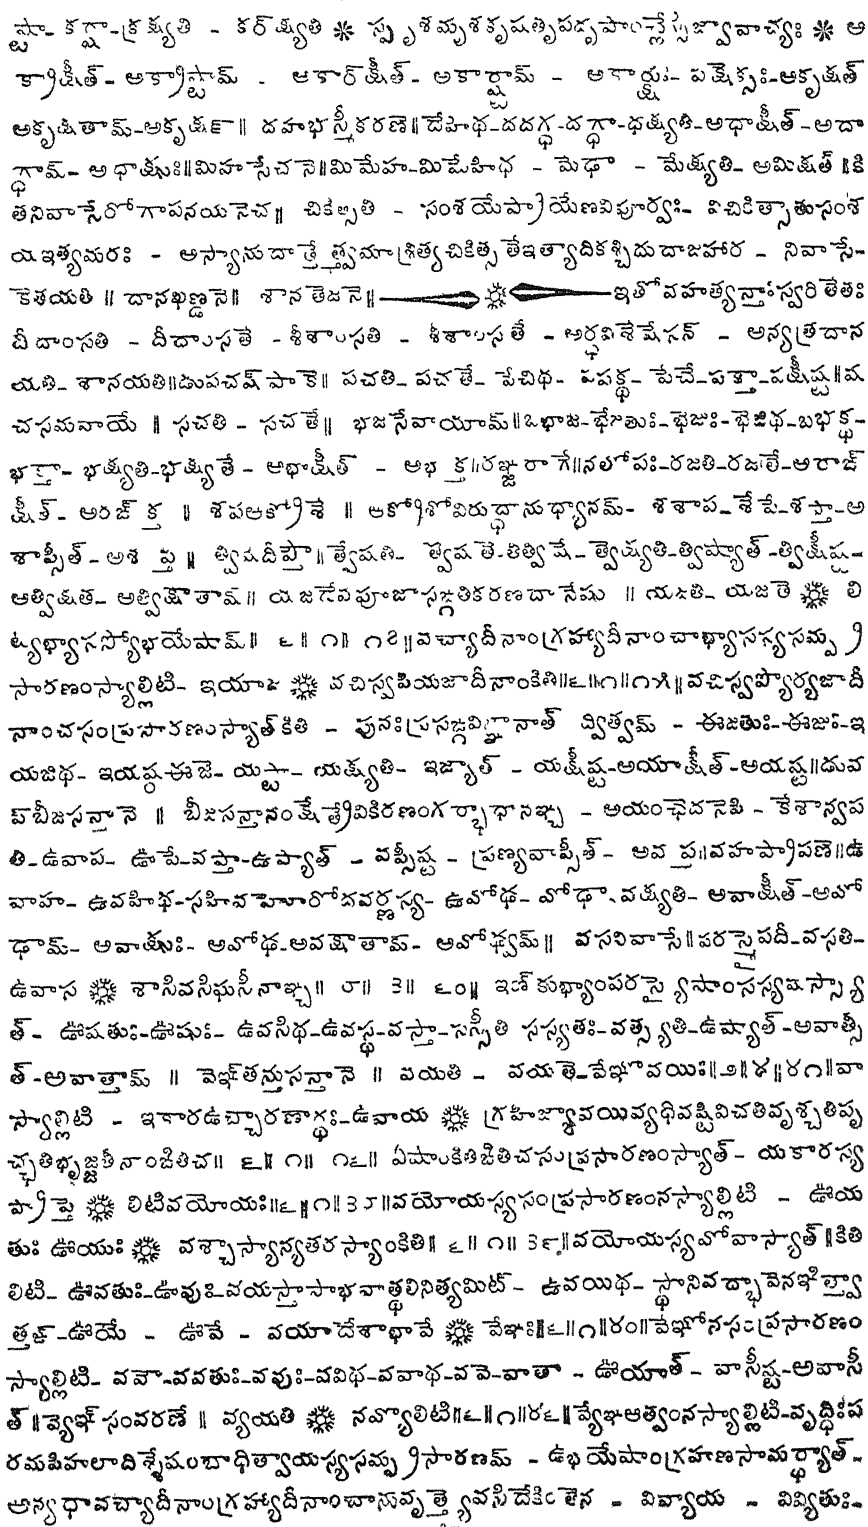 ష్టా- కర్ష్టా-క్రక్ష్యతి - కర్‌క్ష్యతి ❋ స్పృశమృశకృషతృపదృపాంచ్లేస్సిజ్వావాచ్యః ❋ అ
క్రాక్షీత్- అక్రాష్టామ్ - అకార్‌క్షీత్- అకార్ష్టామ్ - అకార్క్షుః- పక్షేక్సః-అకృక్షత్
అకృక్షతామ్-అకృక్షన్॥ దహభస్మీకరణే॥దేహిథ-దదగ్ధ-దగ్ధా-ధక్ష్యతి-అధాక్షీత్-అదా
గ్ధామ్- అధాక్షుః॥మిహసేచనే॥మిమేహ-మిమేహిథ - మేఢా - మేక్ష్యతి- అమిక్షత్॥కి
తనివాసేరోగాపనయనేచ॥ చికిత్సతి - సంశయేప్రాయేణవిపూర్వః- విచికిత్సాతుసంశ
యఇత్యమరః - అస్యానుదాత్తేత్త్వమాశ్రిత్యచికిత్సతేఇత్యాదికశ్చిదుదాజహార - నివాసే-
కేతయతి॥ దానఖణ్డనే॥ శానతేజనే॥ ❋ ఇతోవహత్యన్తాఃస్వరితేతః
దీదాంసతి - దీదాంసతే - శీశాంసతి - శీశాంసతే - అర్థవిశేషేసన్ - అన్యత్రదాన
యతి- శానయతి॥డుపచష్‌పాకే॥ పచతి- పచతే- పేచిథ- పపక్థ- పేచే-పక్తా-పక్షీష్ట॥ష
చసమవాయే॥ సచతి - సచతే॥ భజసేవాయామ్॥బభాజ-భేజతుః-భేజుః-భేజిథ-బభక్థ-
భక్తా- భక్ష్యతి-భక్ష్యతే- అభాక్షీత్ - అభక్త॥రఞ్జరాగే॥నలోపః-రజతి-రజతే-అరాఙ్
క్షీత్- అరఙ్క్త॥ శపఆక్రోశే॥ ఆక్రోశోవిరుద్ధానుధ్యానమ్- శశాప-శేపే-శప్తా-అ
శాప్సీత్-అశప్త॥ త్విషదీప్తౌ॥త్వేషతి- త్వేషతే-తిత్విషే-త్వేక్ష్యతి-త్విష్యాత్-త్విక్షీష్ట-
అత్విక్షత- అత్విక్షాతామ్॥ యజదేవపూజాసఙ్గతికరణదానేషు॥ యజతి- యజతే ❋ లి
ట్యభ్యాసస్యోభయేషామ్॥ ౬॥౧॥౧౭॥వచ్యాదీనాంగ్రహ్యాదీనాంచాభ్యాసస్యసమ్ప్ర
సారణంస్యాల్లిటి- ఇయాజ ❋ వచిస్వపియజాదీనాంకితి॥౬॥౧॥౧౫॥వచిస్వప్యోర్యజాదీ
నాంచసంప్రసారణంస్యాత్‌కితి - పునఃప్రసఙ్గవిజ్ఞానాత్ ద్విత్వమ్ - ఈజతుః-ఈజుః-ఇ
యజిథ- ఇయష్ఠ-ఈజే- యష్టా- యక్ష్యతి- ఇజ్యాత్ - యక్షీష్ట-అయాక్షీత్-అయష్ట॥డువ
ప్‌బీజసన్తానే॥ బీజసన్తానంక్షేత్రేవికిరణంగర్భాధానఞ్చ - అయంఛేదనేపి - కేశాన్వప
తి-ఉవాప- ఊపే-వప్తా-ఉప్యాత్ - వప్సీష్ట - ప్రణ్యవాప్సీత్- అవప్త॥వహప్రాపణే॥ఉ
వాహ- ఉవహిథ-సహివహోరోదవర్ణస్య- ఉవోఢ- వోఢా-వక్ష్యతి- అవాక్షీత్-అవో
ఢామ్- అవాక్షుః- అవోఢ-అవక్షాతామ్- అవోఢ్వమ్॥ వసనివాసే॥పరస్మైపదీ-వసతి-
ఉవాస ❋ శాసివసిఘసీనాఞ్చ॥౮॥౩॥౬౦॥ ఇణ్‌కుభ్యాంపరస్యైషాంసస్యషస్స్యా
త్- ఊషతుః-ఊషుః- ఉవసిథ-ఉవస్థ-వస్తా-సస్సీతి సస్యతః-వత్స్యతి-ఉష్యాత్-అవాత్సీ
త్-అవాత్తామ్॥ వేఞ్‌తన్తుసన్తానే॥ వయతి - వయతే-వేఞోవయిః॥౨॥౪॥౪౧॥వా
స్యాల్లిటి - ఇకారఉచ్చారణార్థః-ఉవాయ ❋ గ్రహిజ్యావయివ్యధివష్టివిచతివృశ్చతిపృ
చ్ఛతిభృజ్జతీనాంఙితిచ॥౬॥౧॥౧౬॥ ఏషాంకితిఙితిచసంప్రసారణంస్యాత్- యకారస్య
ప్రాప్తే ❋ లిటివయోయః॥౬॥౧॥౩౮॥వయోయస్యసంప్రసారణంనస్యాల్లిటి - ఊయ
తుః ఊయుః ❋ వశ్చాస్యాన్యతరస్యాంకితి॥౬॥౧॥౩౯॥వయోయస్యవోవాస్యాత్॥కితి
లిటి- ఊవతుః-ఊవుః-వయస్తాసాభవాత్థలినిత్యమిట్- ఉవయిథ- స్థానివద్భావేనఞిత్త్వా
త్తఙ్-ఊయే - ఊవే - వయాదేశాభావే ❋ వేఞః॥౬॥౧॥౪౦॥వేఞోనసంప్రసారణం
స్యాల్లిటి- వవౌ-వవతుః-వవుః-వవిథ-వవాథ-వవే-వాతా - ఊయాత్- వాసీష్ట-అవాసీ
త్॥వ్యేఞ్ సంవరణే॥ వ్యయతి ❋ నవ్యోలిటి॥౬॥౧॥౪౬॥వ్యేఞఆత్వంనస్యాల్లిటి-వృద్ధిఃప
రమపిహలాదిశ్శేషంబాధిత్వాయస్యసమ్ప్రసారణమ్ - ఉభయేషాంగ్రహణసామర్థ్యాత్-
అన్యధావచ్యాదీనాంగ్రహ్యాదీనాంచానువృత్త్యైవసిద్ధేకింతేన - వివ్యాయ - వివ్యతుః-